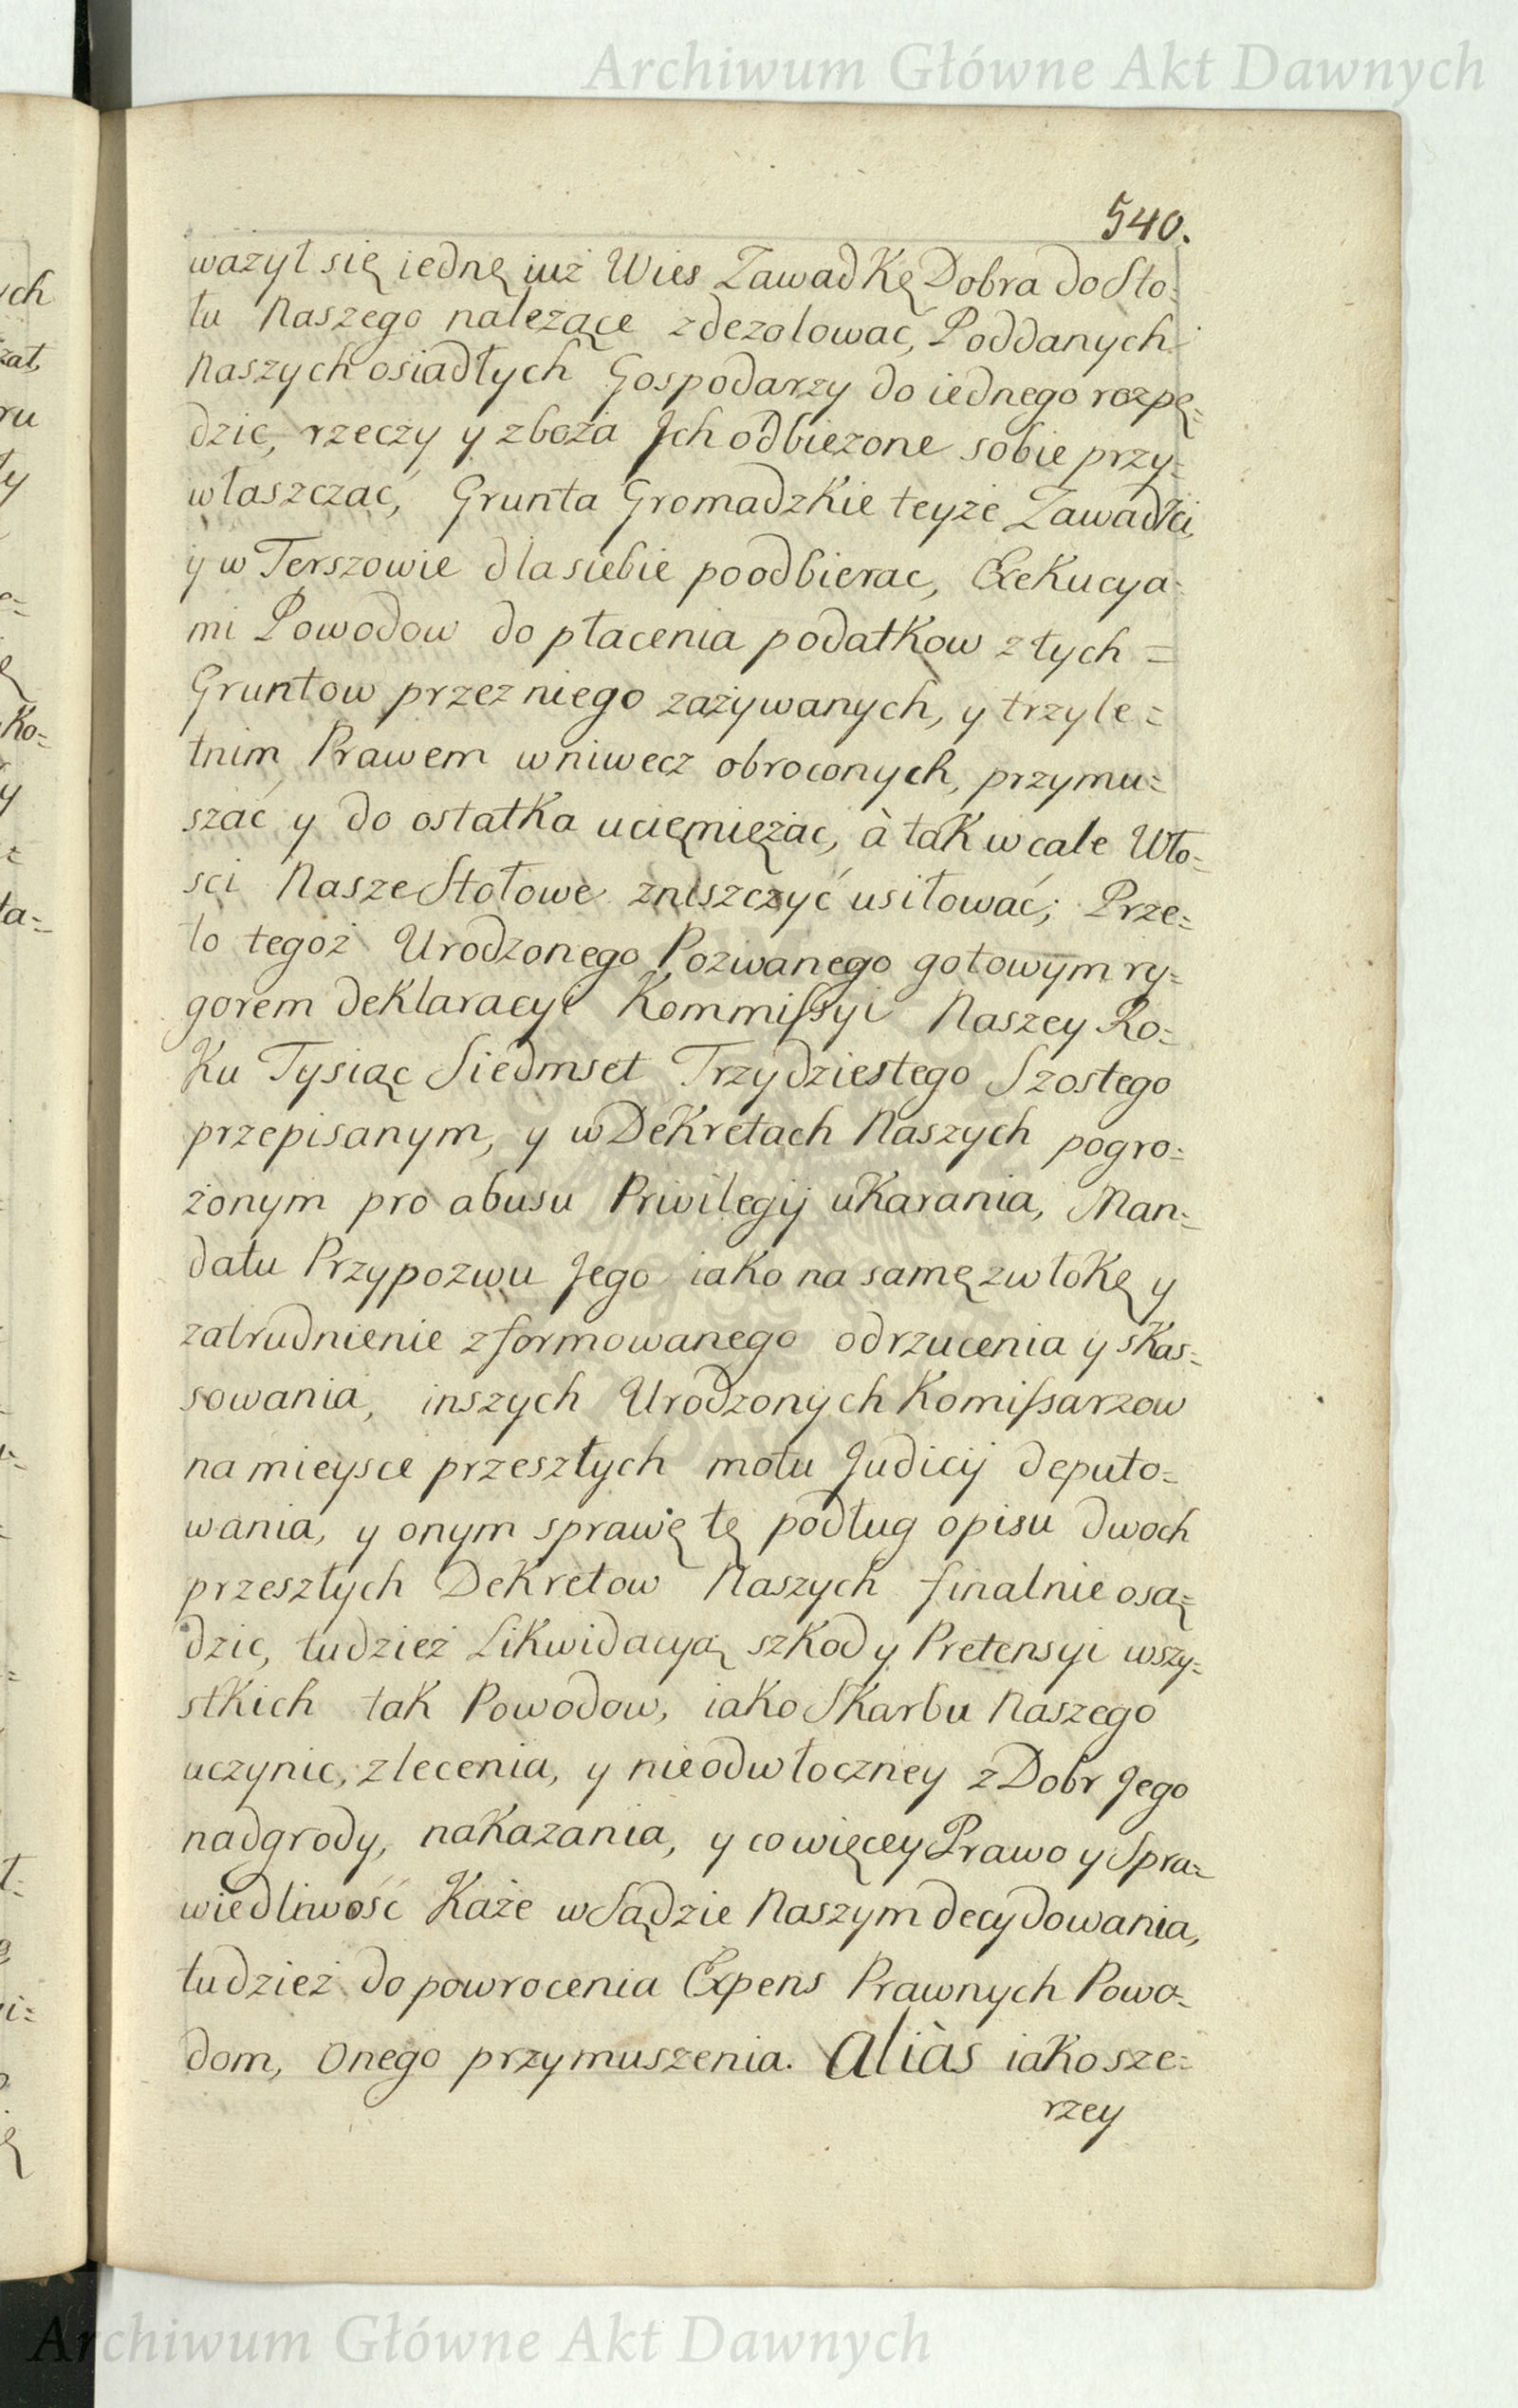 Archiwum Główne Akt Dawnych
540.
ważył się iednę iuż Wies Zawadkę Dobra do Sto=
łu Naszego należące zdezolować, Poddanych
Naszych osiadłych Gospodarzy do iednego rozpę=
dzic, rzeczy y zboża Jch odbieżone sobie przy=
właszczać, Grunta Gromadzkie teyże Zawadki,
y w Terszowie dla siebie poodbierac, Exekucya=
mi Powodow do płacenia podatkow z tych =
Gruntow przez niego zażywanych, y trzyle=
tnim Prawem wniwecz obroconych, przymu=
szać y do ostatka ucięmiężac, à tak wcale Wło=
sci Nasze Stołowe zniszczyć usiłować; Prze=
to tegoż Urodzonego Pozwanego gotowym ry=
gorem deklaracyi Kommissyi Naszey Ro=
ku Tysiąc Siedmset Trzydziestego Szostego
przepisanym, y w Dekretach Naszych pogro=
żonym pro abusu Privilegij ukarania, Man=
datu Przypozwu Jego iako na samę zwłokę y
zatrudnienie zformowanego odrzucenia y skas=
sowania, inszych Urodzonych Komissarzow
na mieysce przeszłych motu Judicij deputo=
wania, y onym sprawę tę podług opisu dwoch
przeszłych Dekretow Naszych finalnie osą=
dzic, tudzież Likwidacyą szkod y Pretensyi wszy=
stkich tak Powodow, iako Skarbu Naszego
uczynic, zlecenia, y nieodwłoczney z Dobr Jego
nadgrody, nakazania, y co więcey Prawo y Spra=
wiedliwość Każe w Sądzie Naszym decydowania,
tudzież do powrocenia Expens Prawnych Powo=
dom, Onego przymuszenia. Aliàs iako sze=
rzey
Archiwum Główne Akt Dawnych